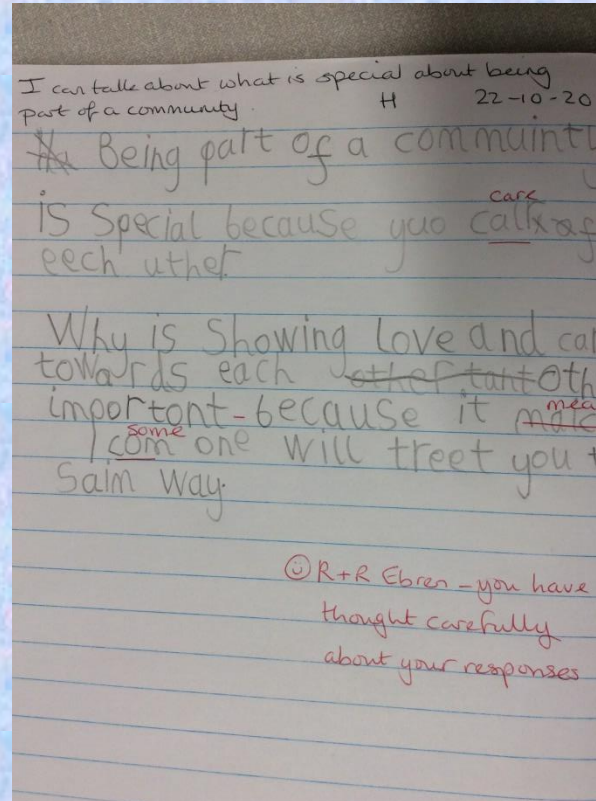 I can talk about what is special about being
part of a community. H 22-10-20
Being part of a commuint
care
is Special because yuo
eech uther.
Why is Showing love and car
towards each other tant Oth
mea
importont - because it
some
com one will treet you t
Saim way.
☺ R+R Ebren - you have
thought carefully
about your responses